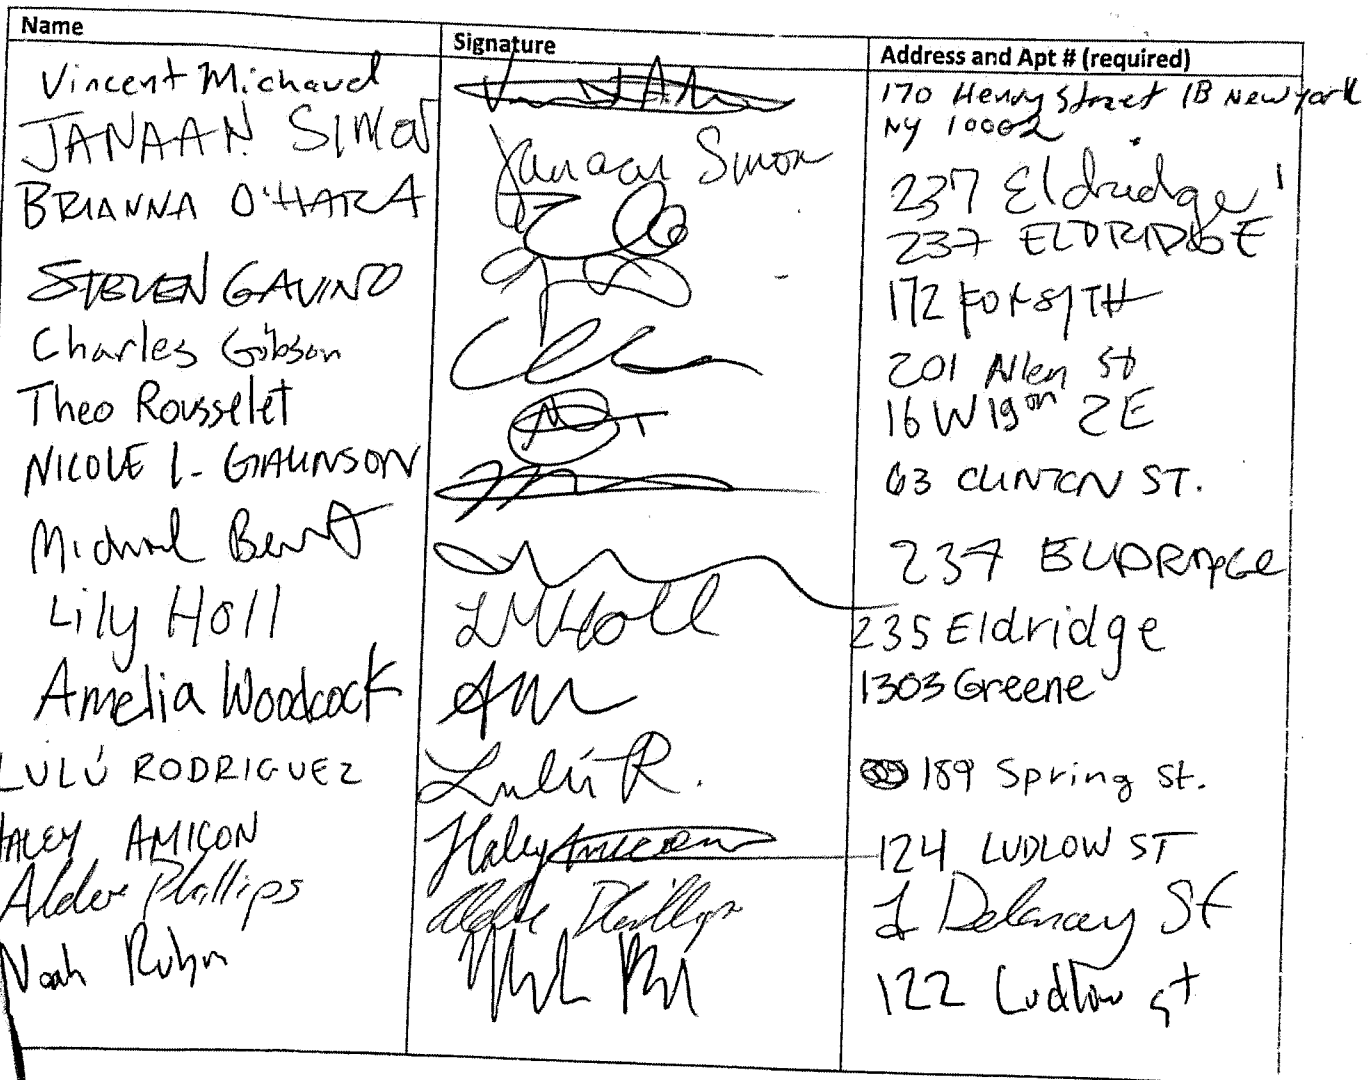 Name Signature Address and Apt # (required)
Vincent Michaud 170 Henry Street 1B New York
NY 10002
JANAAN SIMON Janaan Simon 237 Eldridge
BRIANNA O'HARA 237 ELDRIDGE
STEVEN GAVINO 172 FORSYTH
Charles Gibson 201 Allen St
Theo Rousselet 16 W 19 2E
NICOLE L. 63 CLINTON ST.
Michael 237 ELDRIDGE
Lily Holl LM Holl 235 Eldridge
Amelia Woodcock 1303 Greene
LULÚ RODRIGUEZ Lulú R. 189 Spring St.
HALEY AMICON Haley Amicon 124 LUDLOW ST
Phillips Phillips 1 Delancey St
Noah 122 Ludlow st